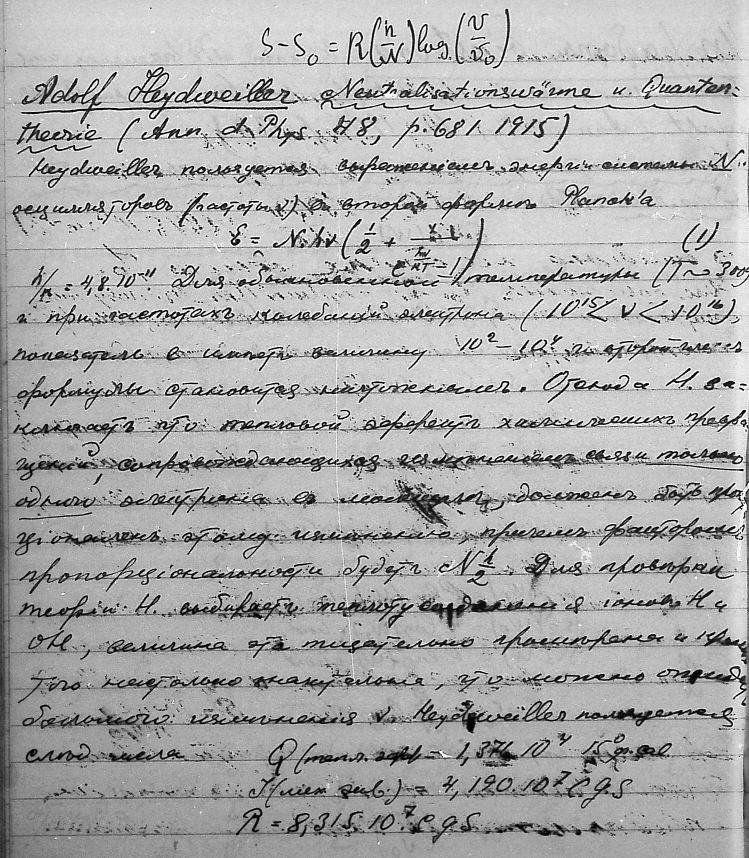 S-S₀ = R(n/N) log(v/v₀)
Adolf Heydweiller Neutralisationswärme u. Quanten-
theorie (Ann. d. Phys. 48, p. 681 1915)
Heydweiller пользуется выражениемъ энергіи системы N
осцилляторовъ (частоты ν) въ второй формѣ Planck'а
E = N.hν (1/2 + 1/(e^(hν/kT) - 1)) (1)
h/k = 4,8.10⁻¹¹ Для обыкновенной температуры (T ~ 300)
и при частотахъ колебаній электрона (10¹⁵ < ν < 10¹⁶),
показатель e имѣетъ величину 10² - 10⁴ и второй членъ
формулы становится ничтожнымъ. Отсюда H. за-
ключаетъ что тепловой эффектъ химическихъ превра-
щеній, сопровождающихся измѣненіемъ связи только
одного электрона въ молекулѣ, долженъ быть про
ціоналенъ этому измѣненію, причемъ факторомъ
пропорціональности будетъ N h/2. Для провѣрки
теоріи H. выбираетъ теплоту соединенія іоновъ H и
OH, величина эта тщательно промѣрена и кромѣ
того настолько значительна, что можно
большого измѣненія ν. Heydweiller пользуется
слѣд. числа Q (тепл. эфф.) = 1,376 10⁴ 15° gr cal
J (мех. экв.) = 4,190.10⁷ C.g.S
R = 8,315.10⁷ C.g.S